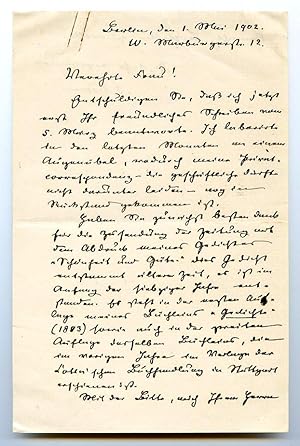 Berlin, den 1. Mai 1902.
W. Marburgerstr. 12.
Verehrte Frau!
Entschuldigen Sie, daß ich jetzt
erst Ihr freundliches Schreiben vom
5. März beantworte. Ich laborirte
in den letzten Monaten an einem
Augenübel, wodurch meine Privat-
correspondenz – die geschäftliche durfte
nicht darunter leiden – arg in
Rückstand gekommen ist.
Haben Sie zunächst besten Dank
für die Zusendung der Zeitung mit
dem Abdruck meines Gedichtes
„Schönheit und Güte“. Dies Gedicht
entstammt älterer Zeit, es ist im
Anfang der siebziger Jahre ent-
standen. Es steht in der ersten Auf-
lage meines Büchleins „Gedichte“
(1883) sowie auch in der zweiten
Auflage desselben Büchleins, die
im vorigen Jahre im Verlage der
Cotta'schen Buchhandlung in Stuttgart
erschienen ist.
Mit der Bitte, mich Ihrem Herrn